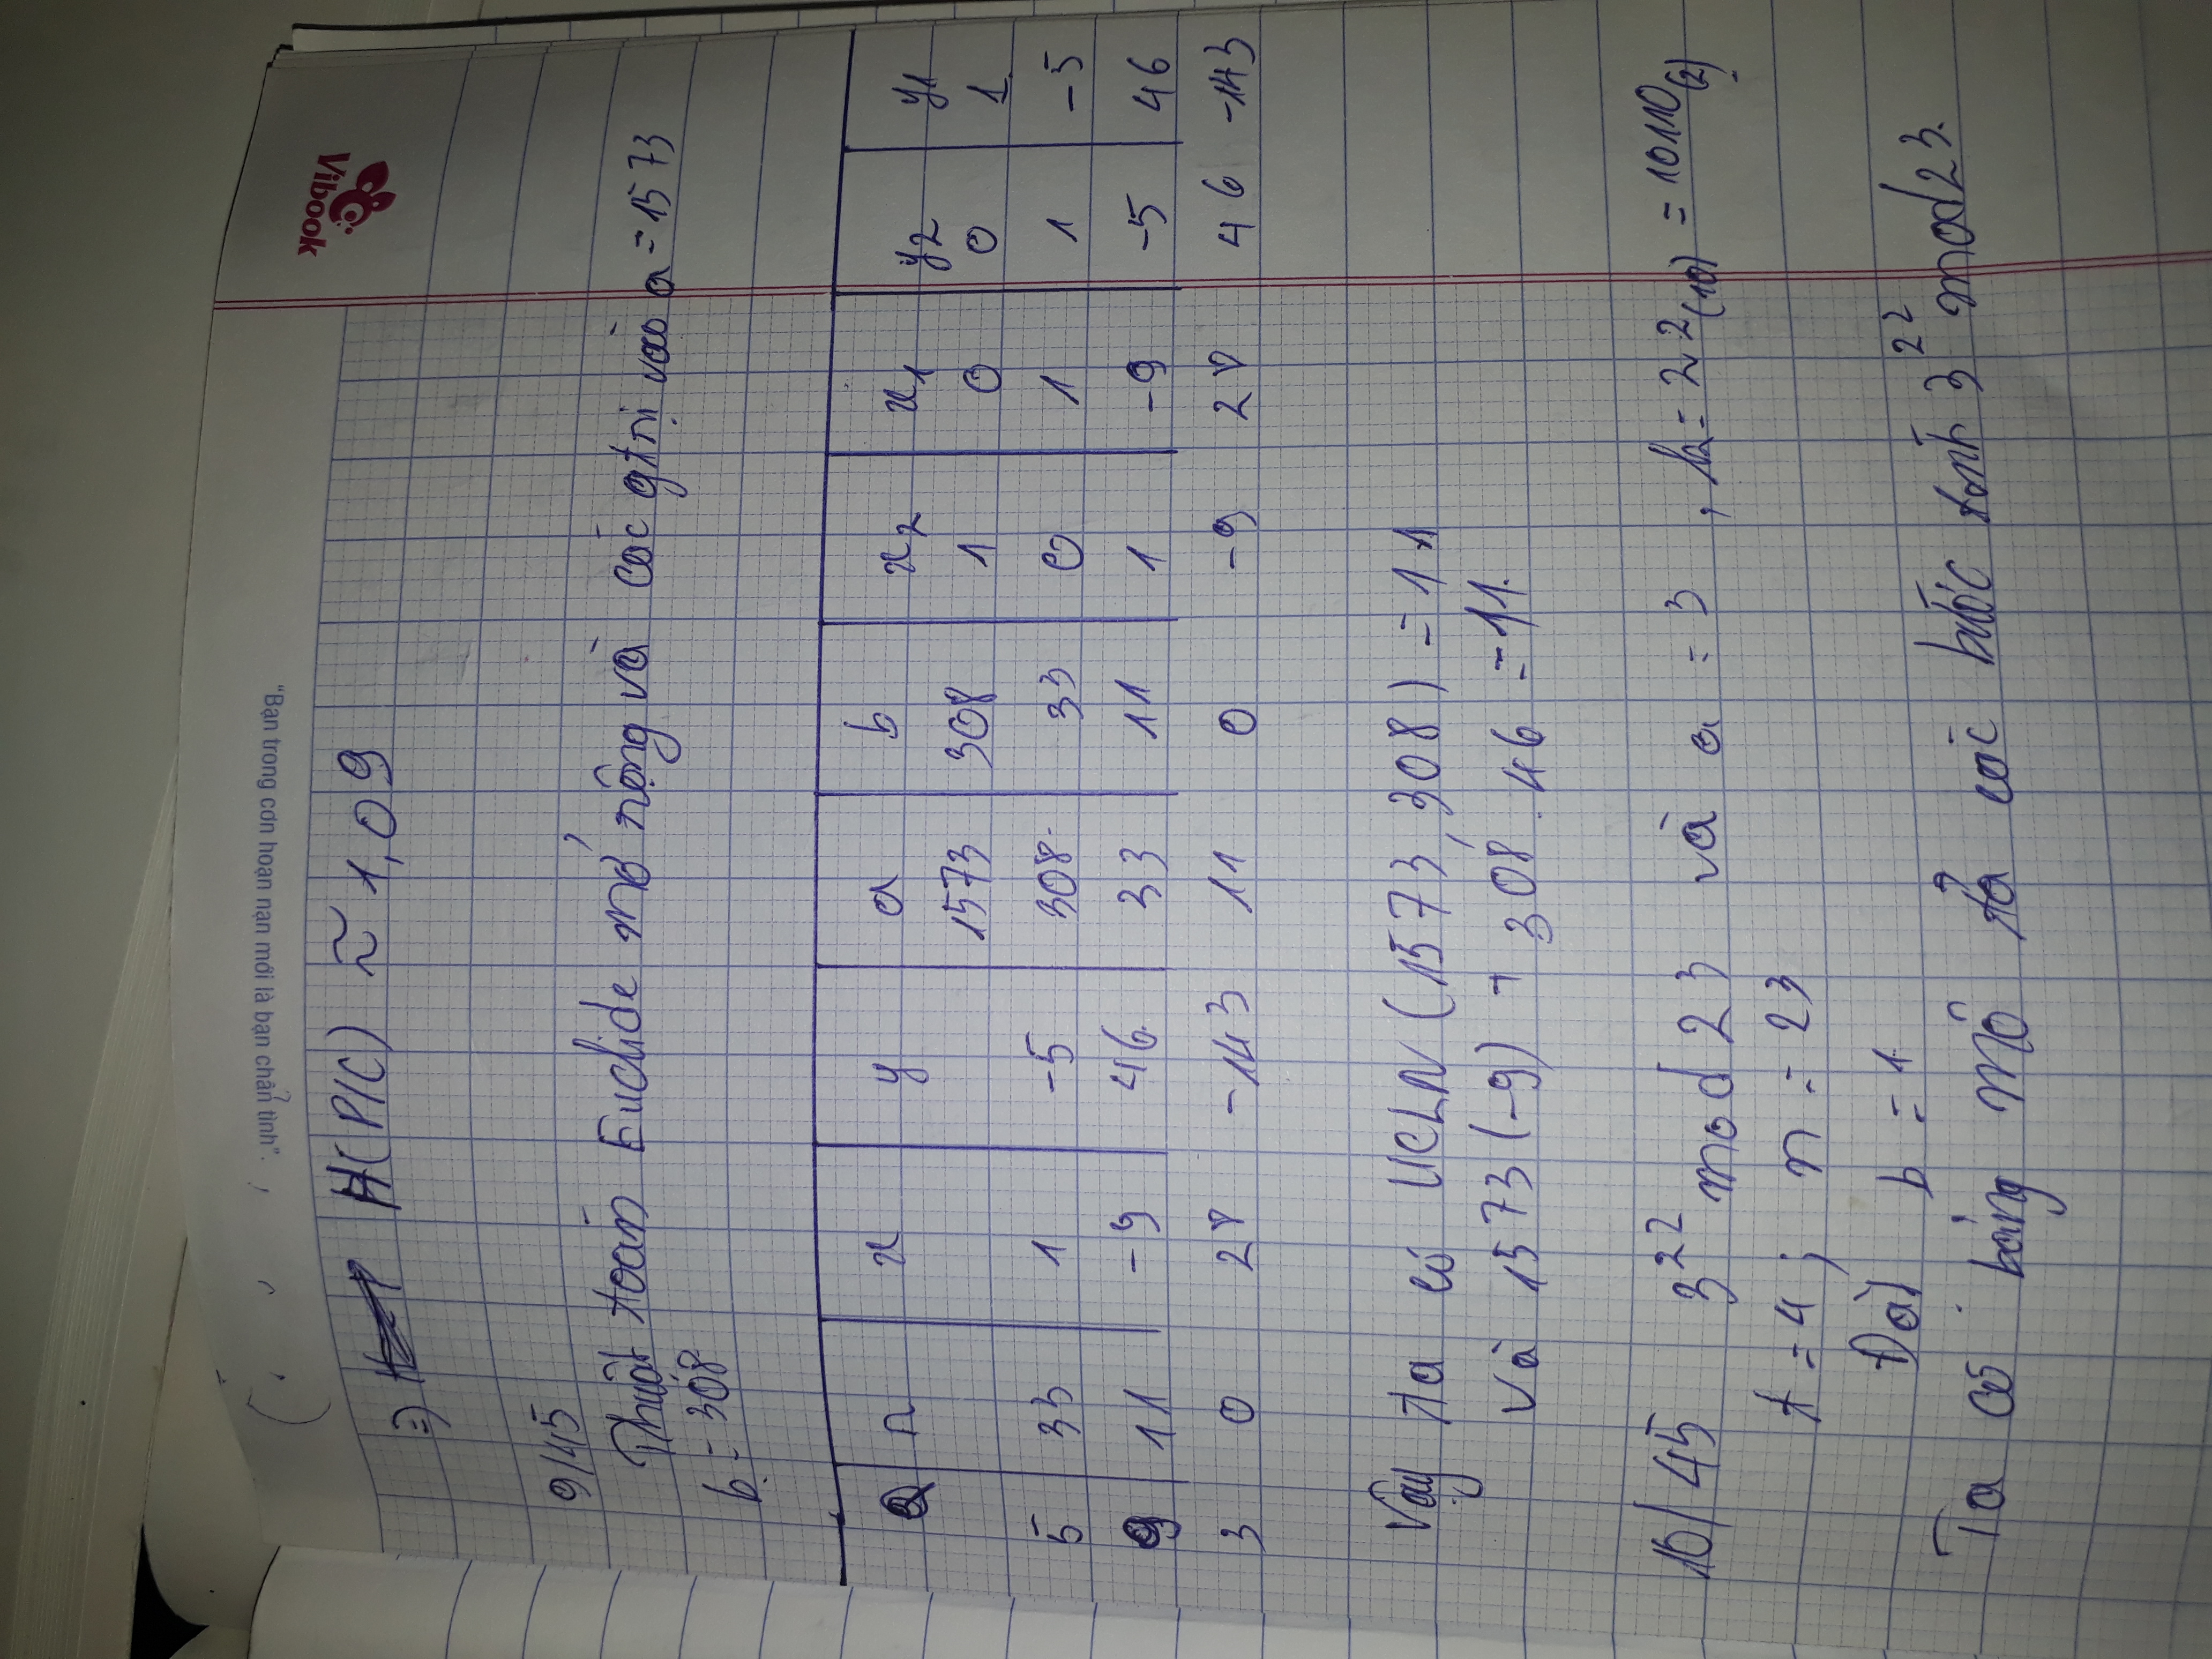 "Bạn trong cơn hoạn nạn mới là bạn chân tình".
Vibook
=> H(P/C) ≈ 1,09
9/45
Thuật toán Euclide mở rộng và các gtrị vào a = 1573
b = 308
Q r x y a b x2 x1 y2 y1
1573 308 1 0 0 1
5 33 1 -5 308 33 0 1 1 -5
9 11 -9 46 33 11 1 -9 -5 46
3 0 28 -143 11 0 -9 28 46 -143
Vậy ta có UCLN (1573, 308) = 11
và 1573(-9) + 308.46 = 11.
10/45 3^22 mod 23 và a = 3, k = 22(10) = 10110(2)
t = 4; n = 23
Đặt b = 1
Ta có bảng mô tả các bước tính 3^22 mod 23.